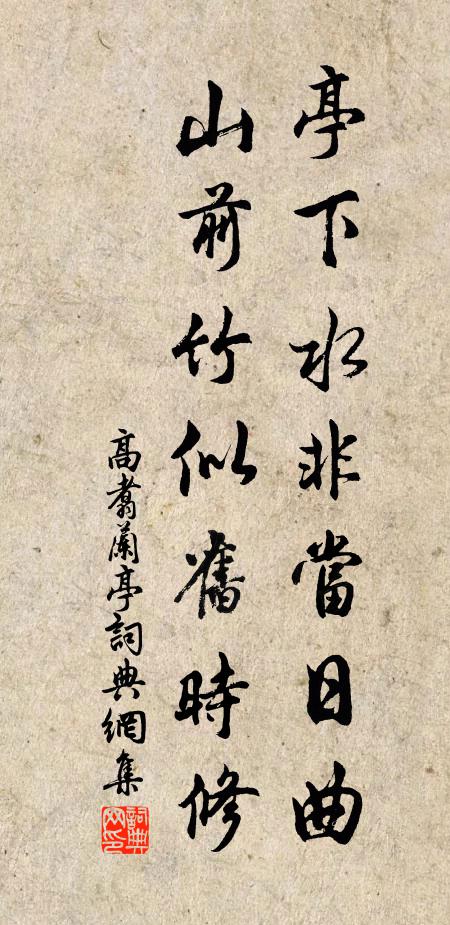 亭下水非當日曲
山前竹似舊時修
高翥蘭亭詞典網集
詞典網印